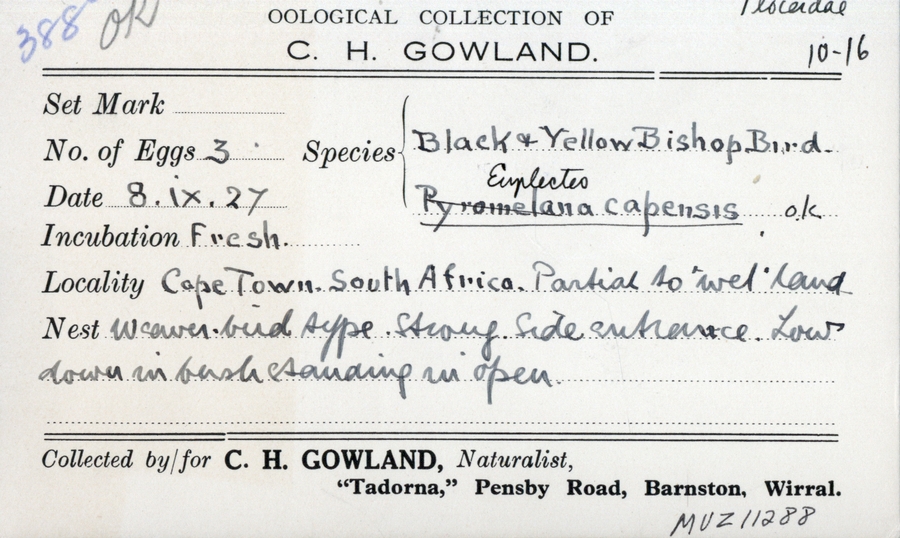 388 OK
Ploceidae
OOLOGICAL COLLECTION OF
C. H. GOWLAND.
10-16
Set Mark
No. of Eggs 3 Species Black & Yellow Bishop Bird.
Euplectes
Date 8.ix.27 Pyromelana capensis ok
Incubation Fresh.
Locality Cape Town. South Africa. Partial to "wet" land
Nest Weaver-bird type. Strong. Side entrance. Low
down in bush standing in open.
Collected by/for C. H. GOWLAND, Naturalist,
"Tadorna," Pensby Road, Barnston, Wirral.
MVZ 11288